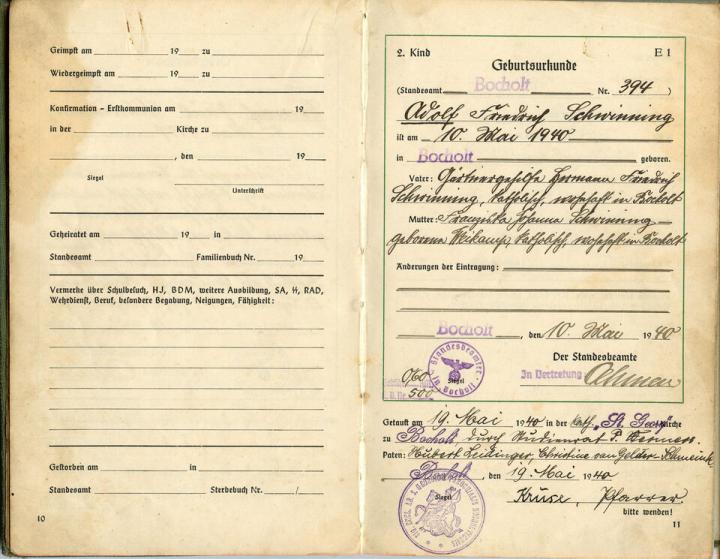 Geimpft am 19 zu
Wiedergeimpft am 19 zu
Konfirmation - Erstkommunion am 19
in der Kirche zu
, den 19
Siegel
Unterschrift
Geheiratet am 19 in
Standesamt Familienbuch Nr. 19
Vermerke über Schulbesuch, HJ, BDM, weitere Ausbildung, SA, ᛋᛋ, RAD,
Wehrdienst, Beruf, besondere Begabung, Neigungen, Fähigkeit:
Gestorben am in
Standesamt Sterbebuch Nr. /
10
2. Kind E 1
Geburtsurkunde
(Standesamt Bocholt Nr. 394 )
Adolf Friedrich Schwinning
ist am 10. Mai 1940
in Bocholt geboren.
Vater: Gärtnergehilfe Hermann Friedrich
Schwinning, katholisch, wohnhaft in Bocholt
Mutter: Franziska Johanna Schwinning
geborene Wikamp, katholisch, wohnhaft in Bocholt
Änderungen der Eintragung:
Bocholt, den 10. Mai 1940
Der Standesbeamte
Standesbeamter
in Bocholt
Siegel
In Vertretung
060
500
Getauft am 19. Mai 1940 in der kath. St. Georg Kirche
zu Bocholt durch Studienrat P. Hermes.
Paten: Hubert Leidinger, Christine van Gelder
Bocholt, den 19. Mai 1940
Siegel
Kruse, Pfarrer.
bitte wenden!
11